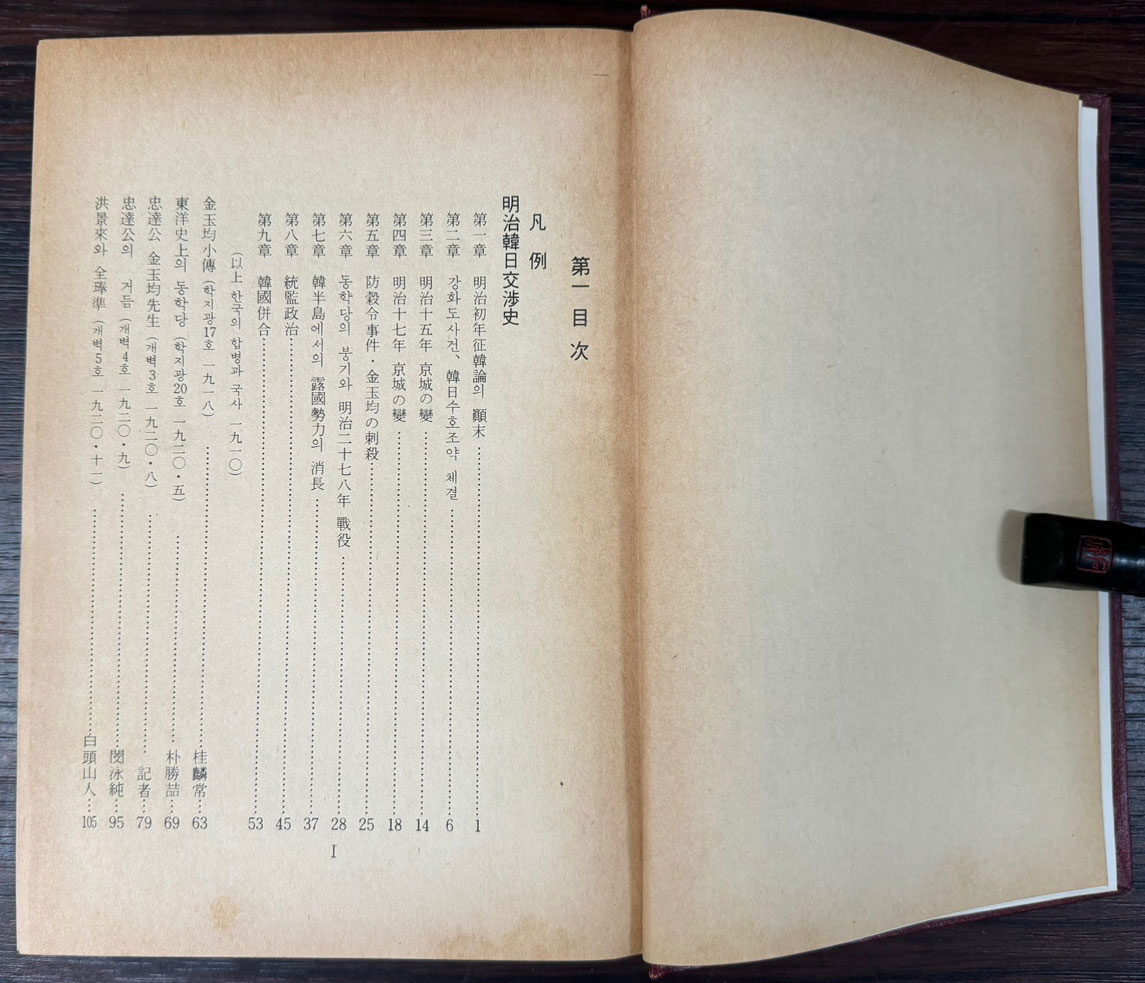 第一目次
凡例
明治韓日交渉史
第一章 明治初年征韓論의 顚末 1
第二章 강화도사건、韓日수호조약 체결 6
第三章 明治十五年 京城の變 14
第四章 明治十七年 京城の變 18
第五章 防穀令事件・金玉均の刺殺 25
第六章 동학당의 붕기와 明治二十七八年 戰役 28
第七章 韓半島에서의 露國勢力의 消長 37
第八章 統監政治 45
第九章 韓國併合 53
(以上 한국의 합병과 국사 一九一〇)
金玉均小傳 (학지광17호 一九一八) 桂麟常 63
東洋史上의 동학당 (학지광20호 一九二〇・五) 朴勝喆 69
忠達公 金玉均先生 (개벽3호 一九二〇・八) 記者 79
忠達公의 거듬 (개벽4호 一九二〇・九) 閔泳純 95
洪景來와 全琫準 (개벽5호 一九二〇・十一) 白頭山人 105
I